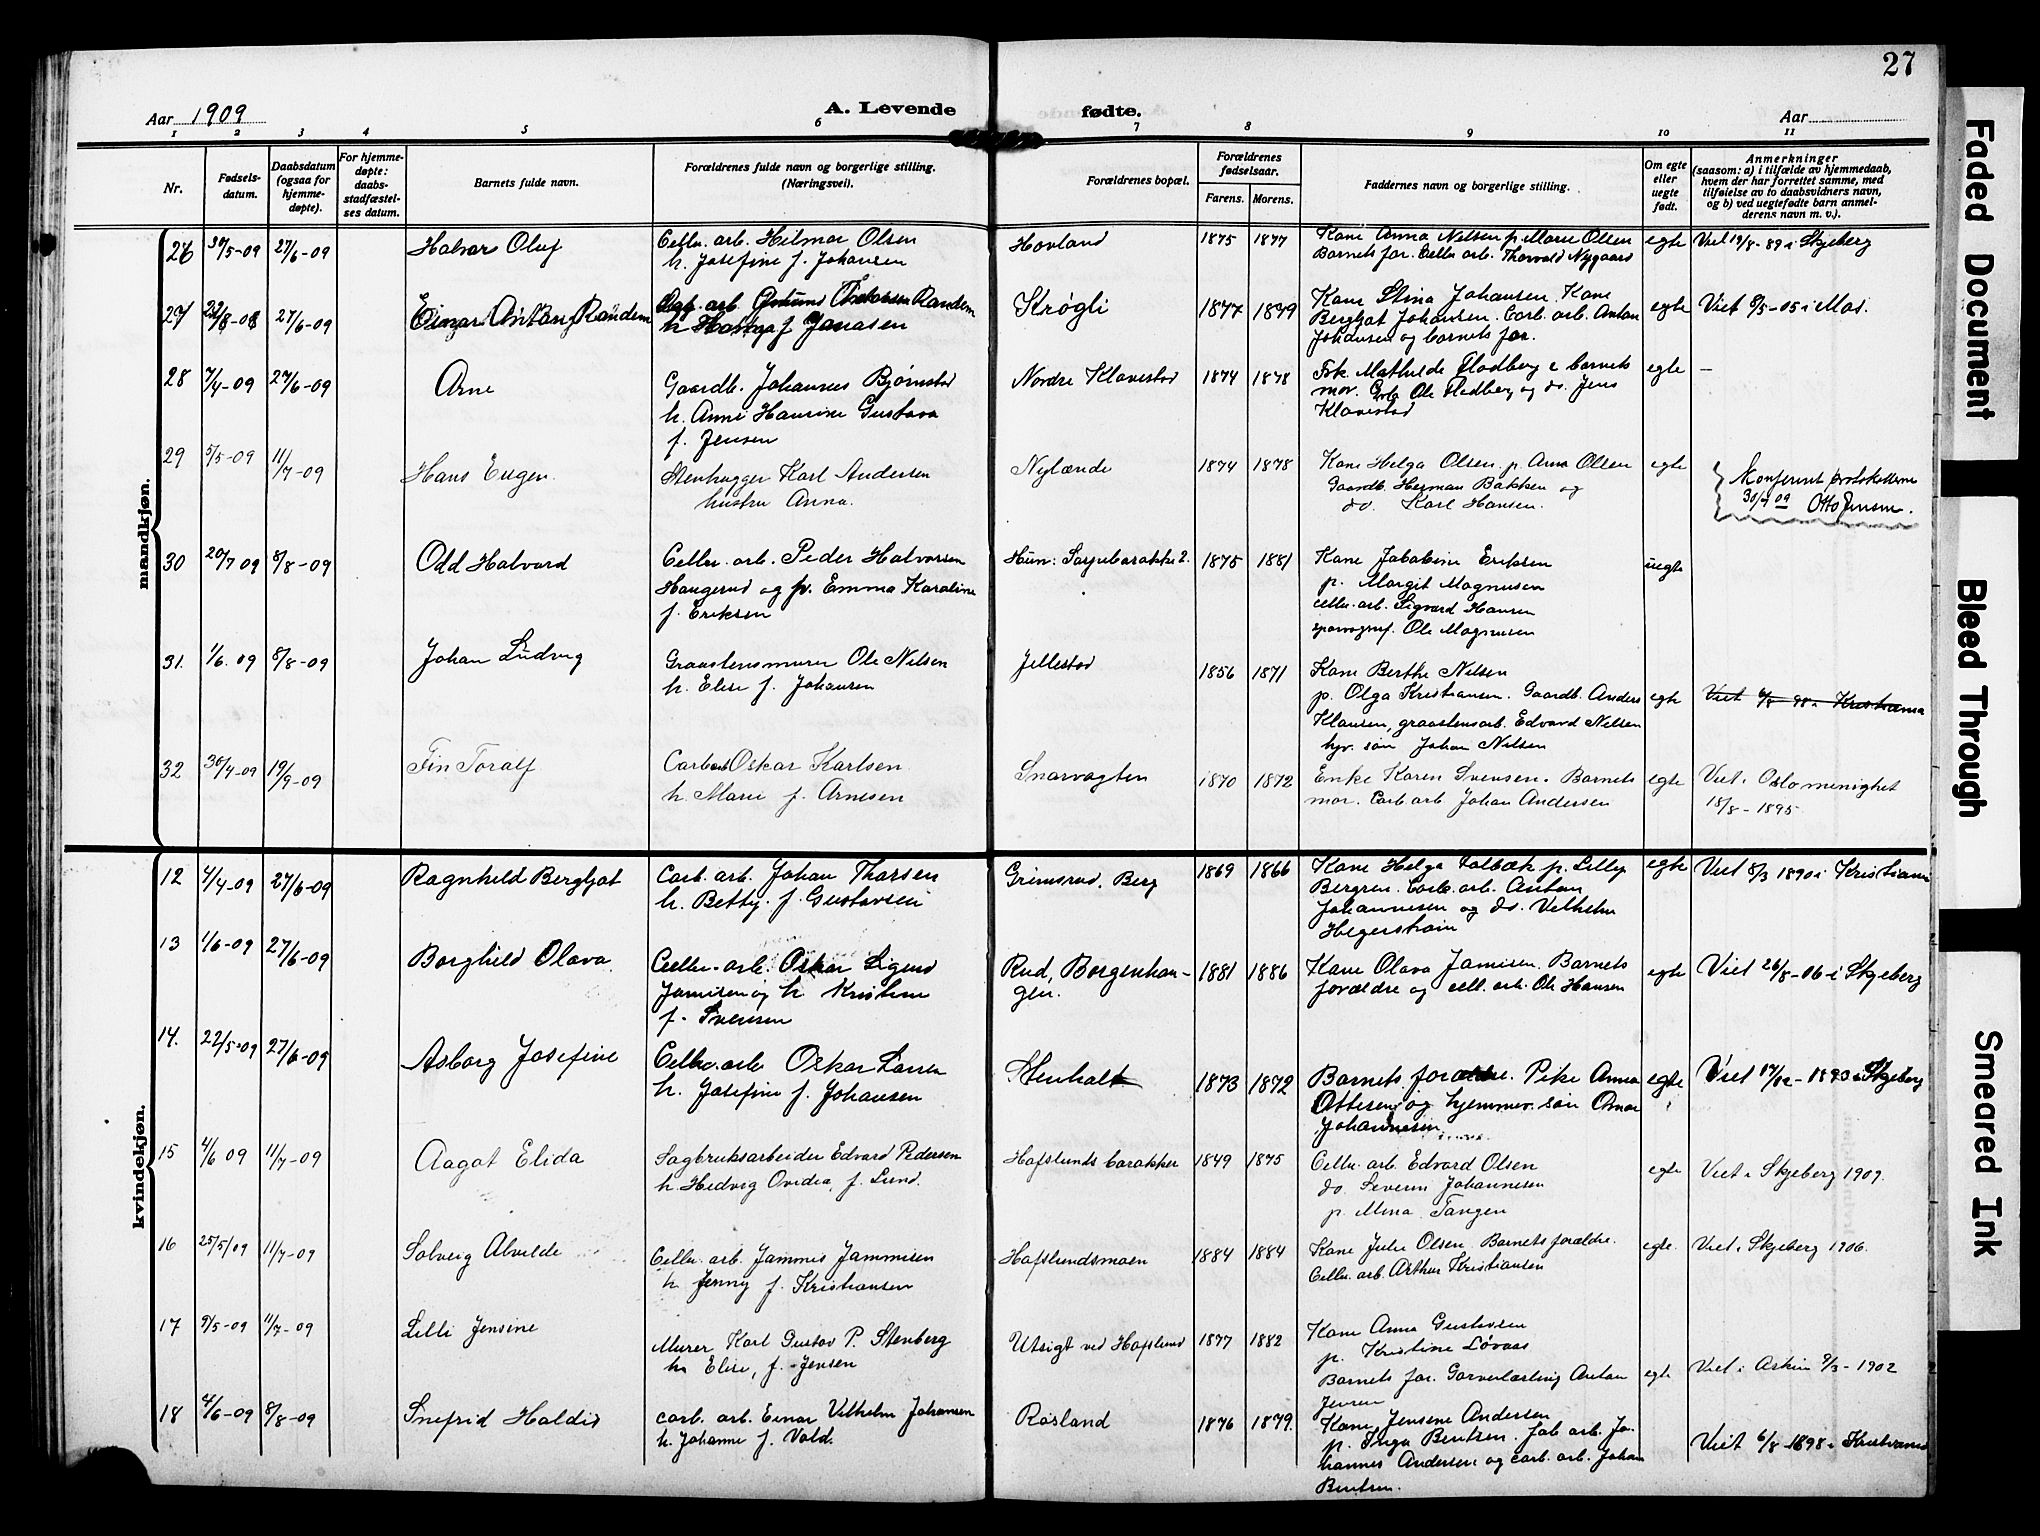 27
Aar 1909
A. Levende
fødte.
Aar
1 2 3 4 5 6 7 8 9 10 11
Nr.
Fødsels-
datum.
Daabsdatum
(ogsaa for
hjemme-
døpte).
For hjemme-
døpte:
daabs-
stadfæstel-
ses datum.
Barnets fulde navn.
Forældrenes fulde navn og borgerlige stilling.
(Næringsvei).
Forældrenes bopæl.
Forældrenes
fødselsaar.
Farens. Morens.
Faddernes navn og borgerlige stilling.
Om egte
eller
uegte
født.
Anmerkninger
(saasom: a) i tilfælde av hjemmedaab,
hvem der har forrettet samme, med
tilføielse av to daabsvidners navn,
og b) ved uegtefødte barn anmel-
derens navn m. v.).
mandkjøn.
26 30/5-09 27/6-09 Halvar Oluf
Cellu. arb. Hilmar Olsen
h. Josefine f. Johansen
Hovland 1875 1877
Kone Anna Nilsen p. Marie Olsen
Barnets far. Cellu. arb. Thorvald Nygaard
egte Viet 19/8-89 i Skjeberg
27 27/6-09 Einar Anton Randem
h. f. Jonasen
Krøgli 1877 1879
Kone Stina Johansen. Kone
Bergljot Johansen. Carb. arb. Anton
Johansen og barnets far.
egte Viet 8/5-05 i Mos.
28 7/4-09 27/6-09 Arne
Gaardb. Johannes Bjørnstad
h. Anne Hansine Gustava
f. Jensen
Nordre Klavestad 1874 1878
Frk. Mathilde Flodberg & barnets
mor. Grb Ole Flodberg og do. Jens
Klavestad
egte —
29 5/5-09 11/7-09 Hans Eugen
Stenhugger Karl Andersen
hustru Anna.
Nylænde 1874 1878
Kone Helga Olsen p. Anna Olsen
Gaardb. Herman Bakken og
do. Karl Hansen.
egte
Konferert protokollerne
30/7 09 Otto Jensen.
30 20/7 09 8/8-09 Odd Halvard
Cellu. arb. Peder Halvorsen
Haugerud og p. Emma Karoline
f. Eriksen
Hun: Sarpebarakke 2. 1875 1881
Kone Jakobine Eriksen
p. Margit Magnusen
cellu. arb. Sigvard Hansen
sporvognsf. Ole Magnusen
uegte
31. 1/6. 09 8/8-09 Johan Ludvig
Graastensmurer Ole Nilsen
h. Elise f. Johansen
Jellestad 1856 1871
Kone Berthe Nilsen
p. Olga Kristiansen. Gaardb. Anders
Klausen, graastensarb. Edvard Nilsen
hjv. søn Johan Nilsen
egte Viet 6/8 98 i Kristiania
32 30/4-09 19/9-09 Fin Toralf
Carb. arb Oskar Karlsen
h. Marie f. Arnesen
Snarvagten 1870 1872
Enke Karen Svensen. Barnets
mor. Carb arb Johan Andersen
egte Viet i Oslo menighet
18/8-1895
kvindekjøn.
12 4/4-09 27/6-09 Ragnhild Bergljot
Carb. arb. Johan Thorsen
h. Betty. f. Gustavsen
Grimsrud, Berg 1869 1866
Kone Helga Kalbæk p. Lilly
Bergren. Carb. arb. Anton
Johannesen og do. Vilhelm
Hegerstrøm
egte Viet 8/3 1890 i Kristiania
13 1/6-09 27/6-09 Borghild Olava
Cellu. arb. Oskar Sigurd
Jamisen og h Kristine
f. Svensen
Rud, Borgenhau-
gen. 1881 1886
Kone Olava Jamisen. Barnets
forældre og cell. arb. Ole Hansen
egte Viet 26/8-06 i Skjeberg
14. 22/5-09 27/6-09 Asborg Josefine
Cellu. arb Oskar Larsen
h. Josefine f. Johansen
Stenhalt 1873 1872
Barnets forældre. Pike Anna
Ottesen og hjemmev. søn Omar
Johannesen
egte Viet 17/12-1893 i Skjeberg
15 4/6 09 11/7-09 Aagot Elida
Sagbruksarbeider Edvard Pedersen
h. Hedvig Ovidia, f. Lund.
Hafslunds barakker 1849 1875
Cellu. arb. Edvard Olsen
do. Severin Johannesen
p. Mina Tangen
egte Viet i Skjeberg 1907.
16 25/5/09 11/7-09 Solveig Alvilde
Cellu. arb. Jammis Jammisen
h. Jenny f. Kristiansen
Hafslundsmoen 1884 1884
Kone Julie Olsen. Barnets forældre.
Cellu. arb. Arthur Kristiansen
egte. Viet i Skjeberg 1906.
17 9/5-09 11/7-09 Lilli Jensine
Murer Karl Gustav P. Stenberg
h. Elise, f. Jensen
Utsigt ved Hafslund 1877 1882
Kone Anna Gustavsen
p. Kristine Løvaas
Barnets far. Garverlærling Anton
Jensen
egte Viet i Askim 9/3-1902
18 4/6-09 8/8-09 Snefrid Haldis
Carb. arb. Einar Vilhelm Johansen
h. Johanne f. Vold.
Røsland 1876 1879.
Kone Jensine Andersen
p. Inga Bentsen. Fab. arb. Jo-
hannes Andersen og carb. arb. Johan
Bentsen.
Viet 6/8-1898 i Kristiania
Faded Document
Bleed Through
Smeared Ink